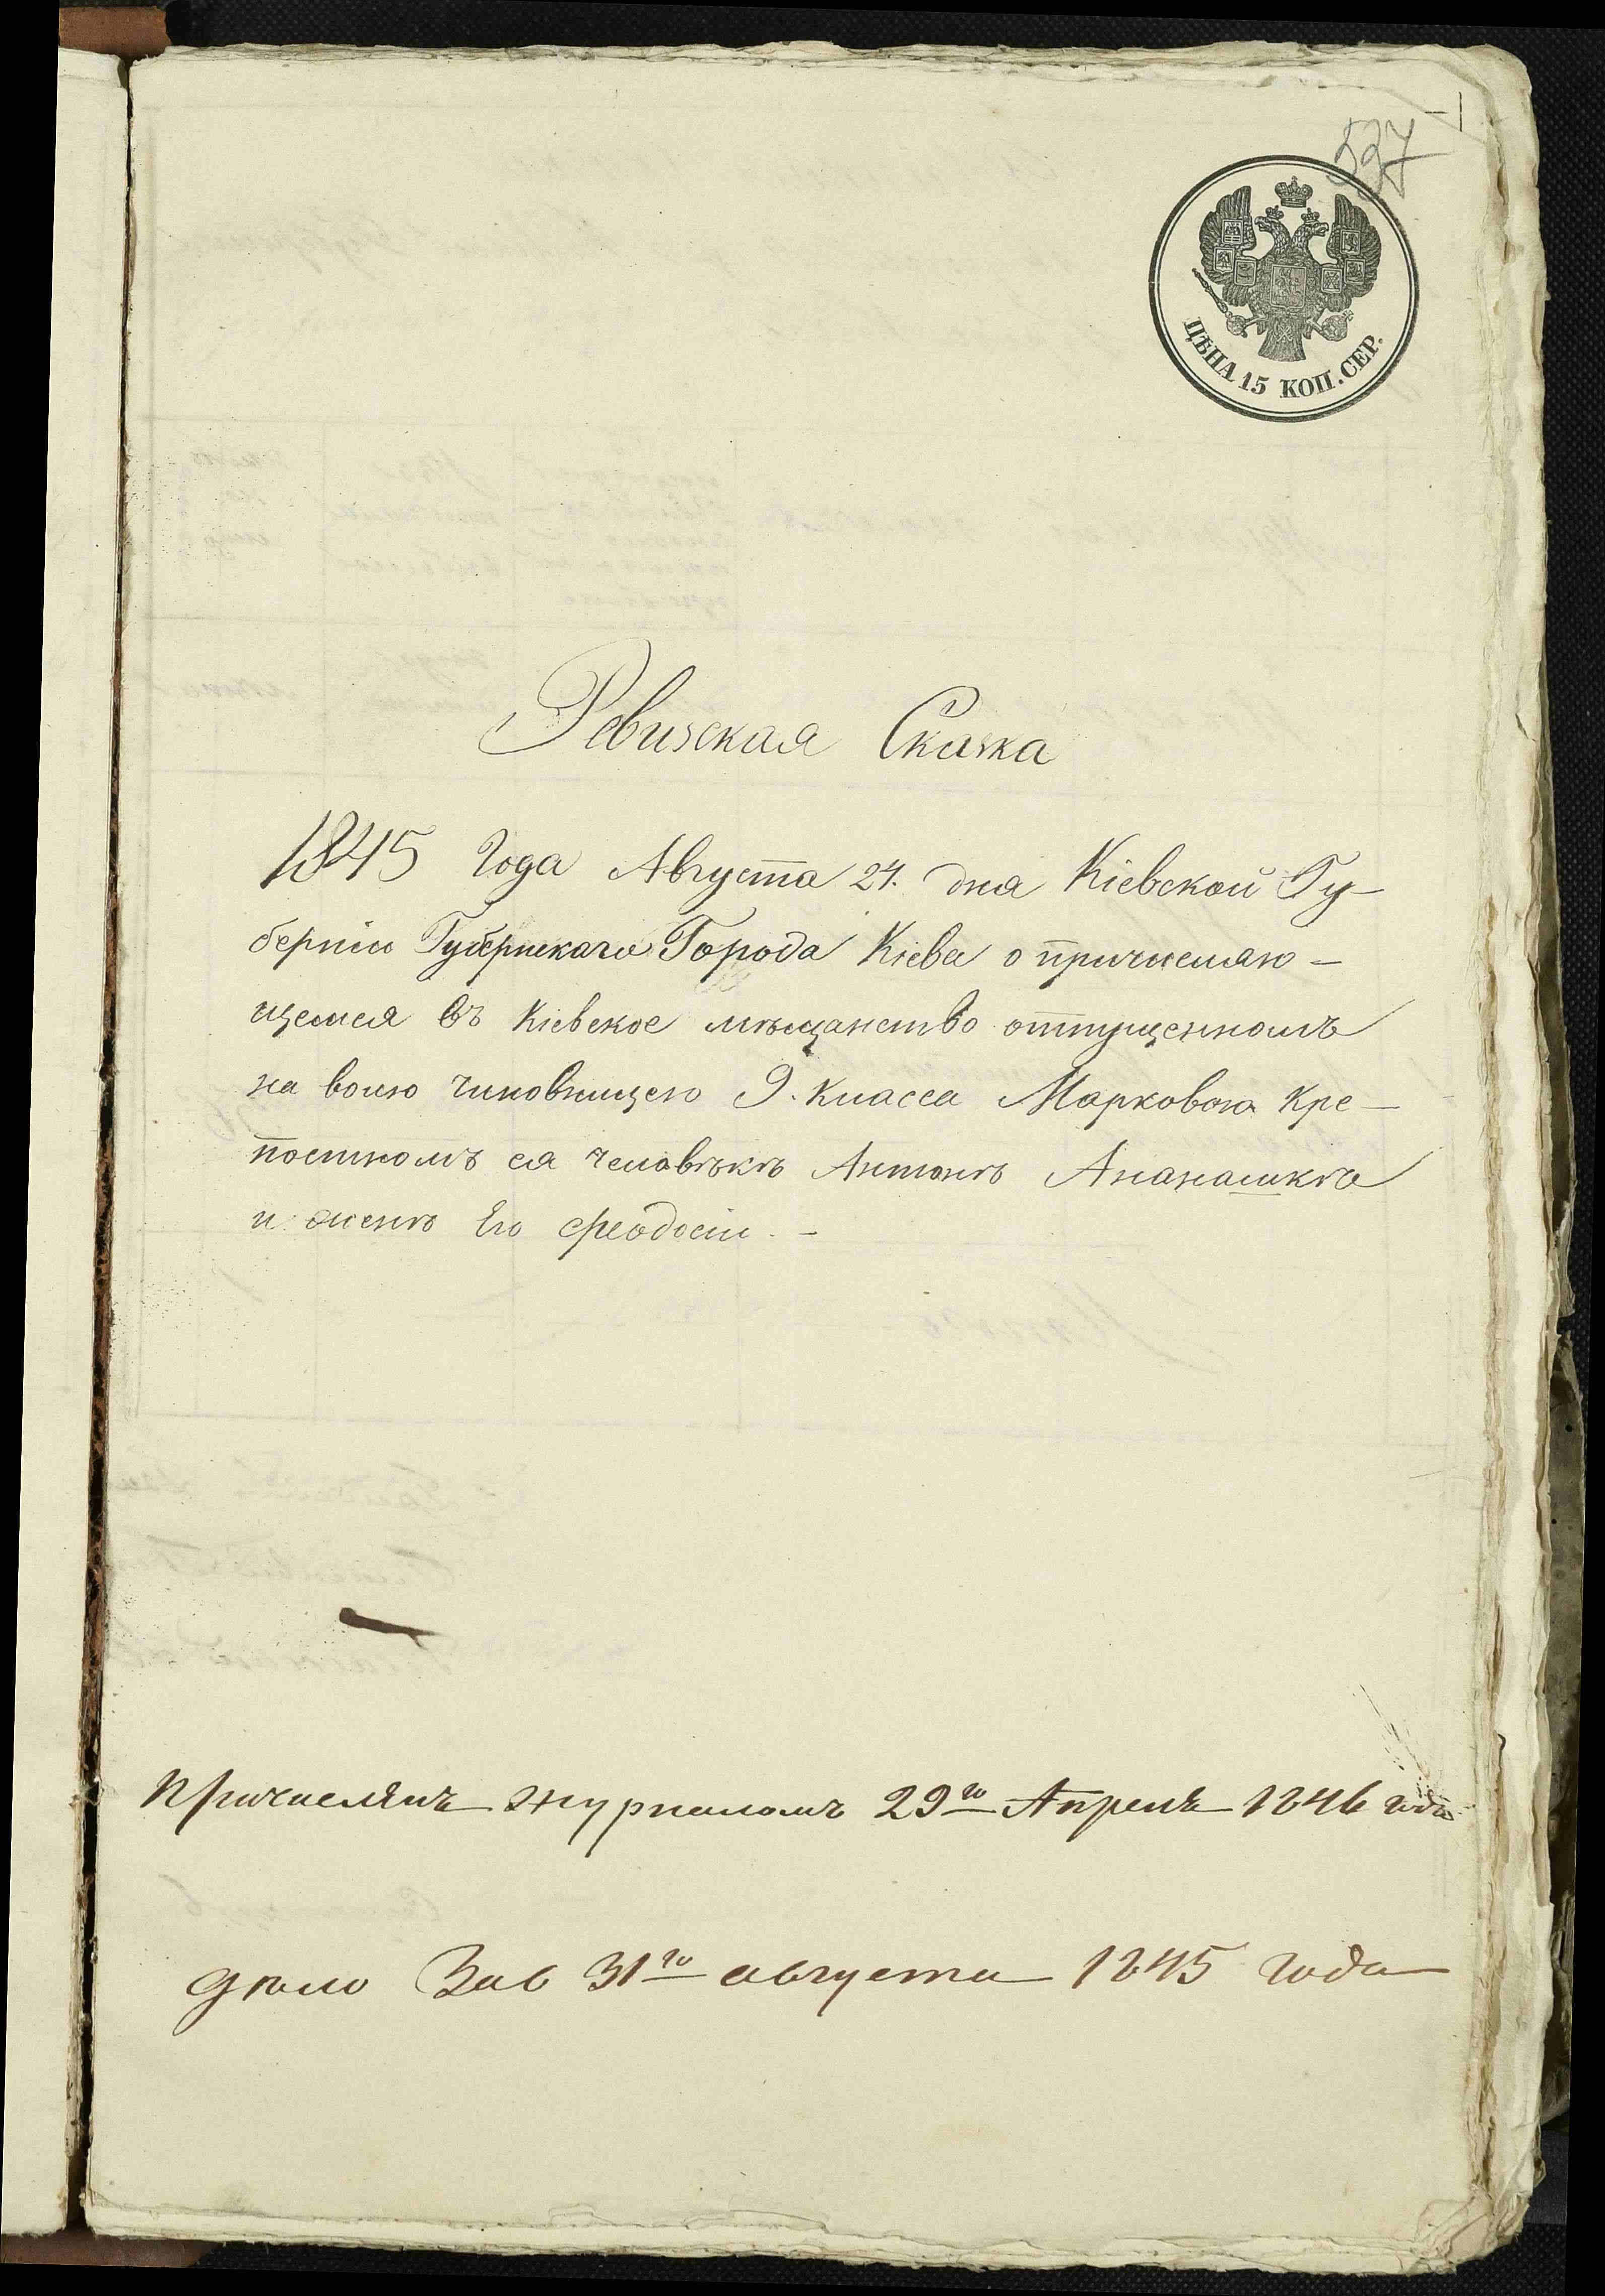 537
ЦѢНА 15 КОП. СЕР.
Ревизская Сказка
1845 Года Августа 27. дня Кіевской Гу-
берніи Губернскаго Города Кіева о причисляю-
щемся въ Кіевское мѣщанство отпущенномъ
на волю чиновницею 9. Класса Марковою Кре-
постномъ ея человѣкѣ Антонѣ Ананашкѣ
и женѣ Его Ѳеодосіи. -
Причисленъ журналомъ 29го Апреля 1846 года
дѣло 31го августа 1845 года